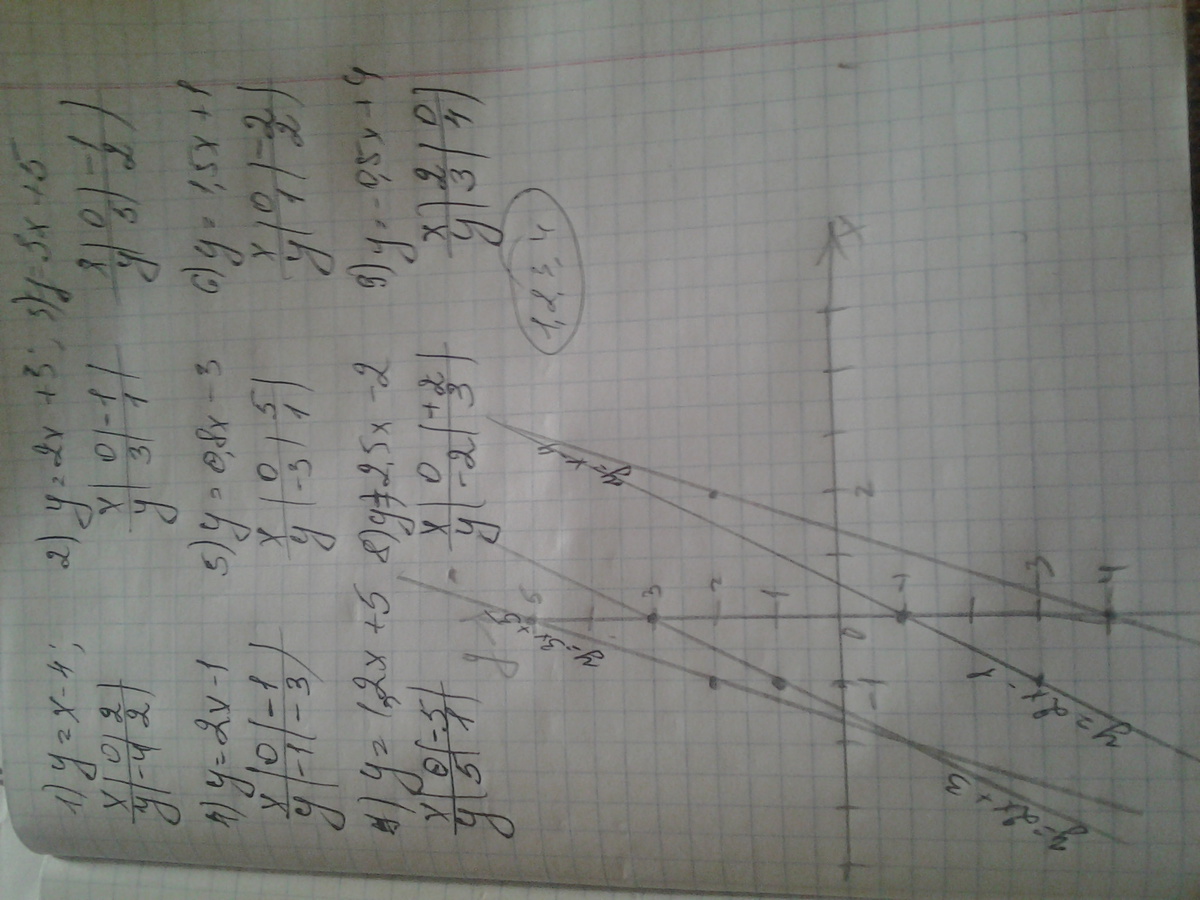 1) y = x - 4; 2) y = 2x + 3; 3) y = 3x + 5
x | 0 | 2 |
y | -4 | 2 |
x | 0 | -1 |
y | 3 | 1 |
x | 0 | -1 |
y | 3 | 2 |
4) y = 2x - 1 5) y = 0,8x - 3 6) y = 1,5x + 1
x | 0 | -1 |
y | -1 | -3 |
x | 0 | 5 |
y | -3 | 1 |
x | 0 | -2 |
y | 1 | 2 |
y = 1,2x + 5 8) y = 2,5x - 2 9) y = -0,5x + 4
x | 0 | -5 |
y | 5 | 1 |
x | 0 | +2 |
y | -2 | 3 |
x | 2 | 0 |
y | 3 | 4 |
1, 2, 3, 4
y
5
y = 3x + 5
3
2
1
-1 0 2 x
-1
y = 2x - 1
3
y = 2x + 3
-4